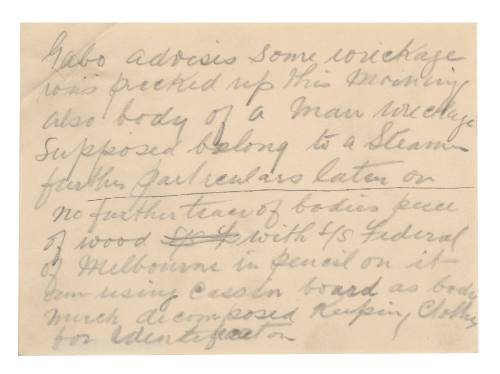 Gabo advises some wreckage
was picked up this morning
also body of a man wreckage
Supposed belong to a Steamer
further particulars later on
no further trace of bodies piece
of wood with S/S Federal
of Melbourne in pencil on it
am using board as body
much decomposed Keeping Clothing
for Identification